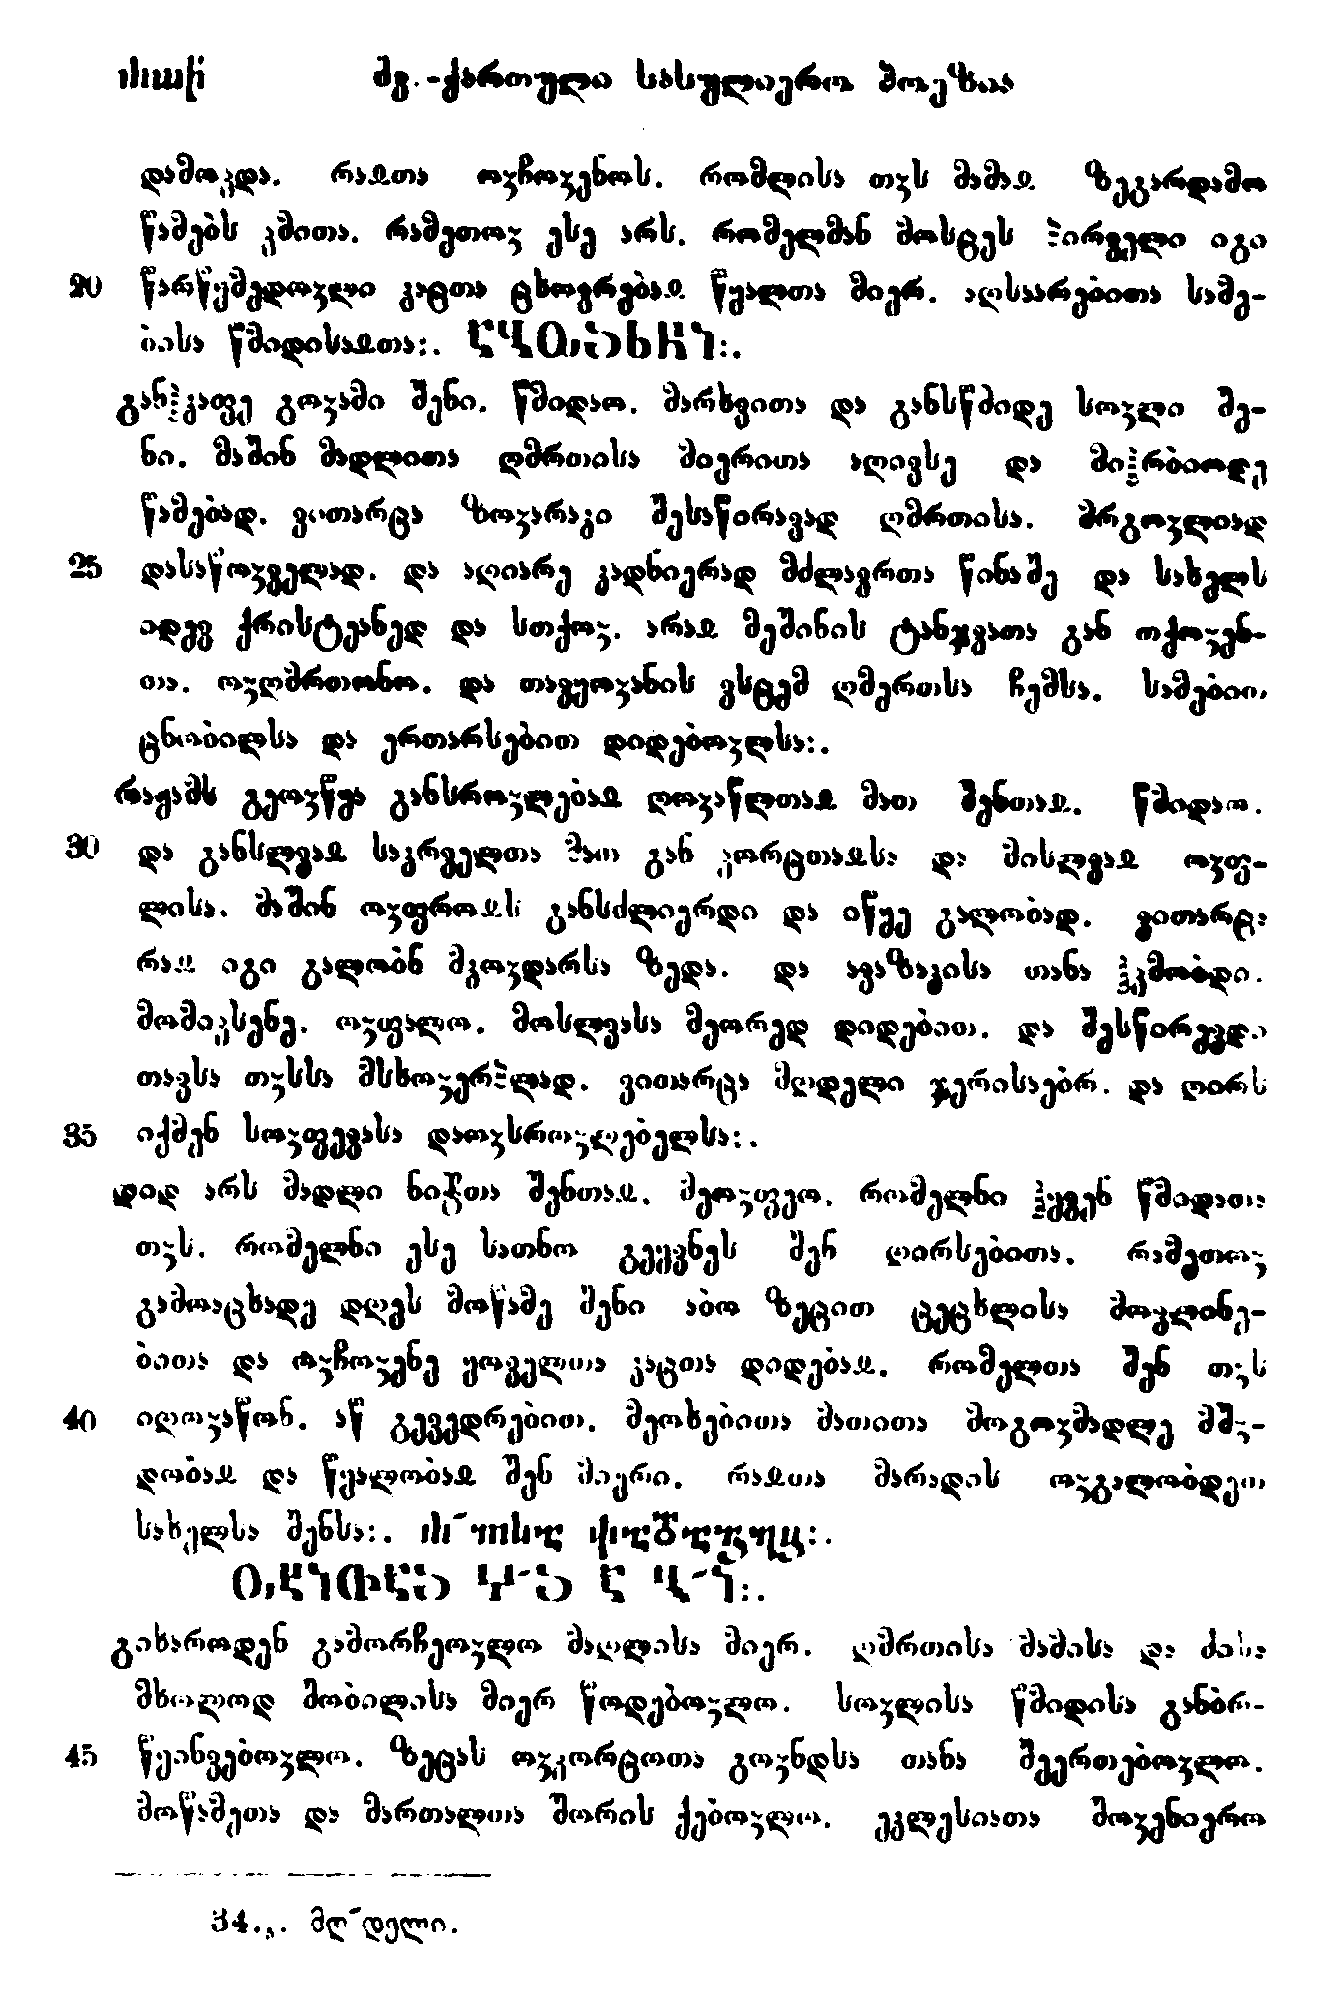 ძვ.-ქართული სასულიერო პოეზია
დამოკდა. რაჲთა ოჳჩოჳენოს. რომლისა თჳს მამაჲ ზეგარდამო
წამებს კმითა. რამეთოჳ ესე არს. რომელმან მოსტეს პირველი იგი
20 წარწყმედოჳლი კაცთა ცხოვრებაჲ წყალთა მიერ. აღსაარებითა სამე-
ბისა წმიდისაჲთა:.
განჰკაფე გოჳამი შენი. წმიდაო. მარხვითა და განსწმიდე სოჳლი შე-
ნი. მაშინ მადლითა ღმრთისა მიერითა აღივსე და მიჰრბიოდე
წამებად. ვითარცა ზოჳარაკი შესაწირავად ღმრთისა. მრგოჳლიად
25 დასაწოჳველად. და აღიარე კადნიერად მძლავრთა წინაშე და სახელს
იდევ ქრისტეანედ და სთქოჳ. არაჲ მეშინის ტანჯვათა გან თქოჳენ-
თა. ოჳღმრთონო. და თავყოჳანის ვსტემ ღმერთსა ჩემსა. სამებით
ცნობილსა და ერთარსებით დიდებოჳლსა:.
რაჟამს გეოჳწყა განსროჳლებაჲ ღოჳაწლთაჲ მათ შენთაჲ. წმიდაო.
30 და განსლვაჲ საკრველთა მათ გან კორცთაჲსა და მისლვაჲ ოჳფ-
ლისა. მაშინ ოჳფროჲს განსძლიერდი და იწყე გალობად. ვითარცა
რაჲ იგი გალობნ მკოჳდარსა ზედა. და ავაზაკისა თანა ჰკმობდი.
მომიკსენე. ოჳფალო. მოსლვასა მეორედ დიდებით. და შესწირევდი
თავსა თჳსსა მსხოჳერპლად. ვითარცა მღდელი ჯერისაებრ. და ღირს
35 იქმენ სოჳფევასა დაოჳსროჳლებელსა:.
დიდ არს მადლი ნიჭთა შენთაჲ. მეოჳფეო. რომელნი ჰყვენ წმიდათა
თჳს. რომელნი ესე სათნო გეყვნეს შენ ღირსებითა. რამეთოჳ
გამოაცხადე დღეს მოწამე შენი აბო ზეცით ცეცხლისა მოვლინე-
ბითა და ოჳჩოჳენე ყოველთა კაცთა დიდებაჲ. რომელთა შენ თჳს
40 იღოჳაწონ. აწ გევედრებით. მეოხებითა მათითა მოგოჳმადლე მშჳ-
დობაჲ და წყალობაჲ შენ მიერი. რაჲთა მარადის ოჳგალობდეთ
სახელსა შენსა:.
გიხაროდენ გამორჩეოჳლო მადლისა მიერ. ღმრთისა მამისა და ძისა
მხოლოდ შობილისა მიერ წოდებოჳლო. სოჳლისა წმიდისა განბრ-
45 წყინვებოჳლო. ზეცას ოჳკორცოთა გოჳნდსა თანა შეერთებოჳლო.
მოწამეთა და მართალთა შორის ქებოჳლო. ეკლესიათა მოჳენიერო
34.,. მღ˜დელი.